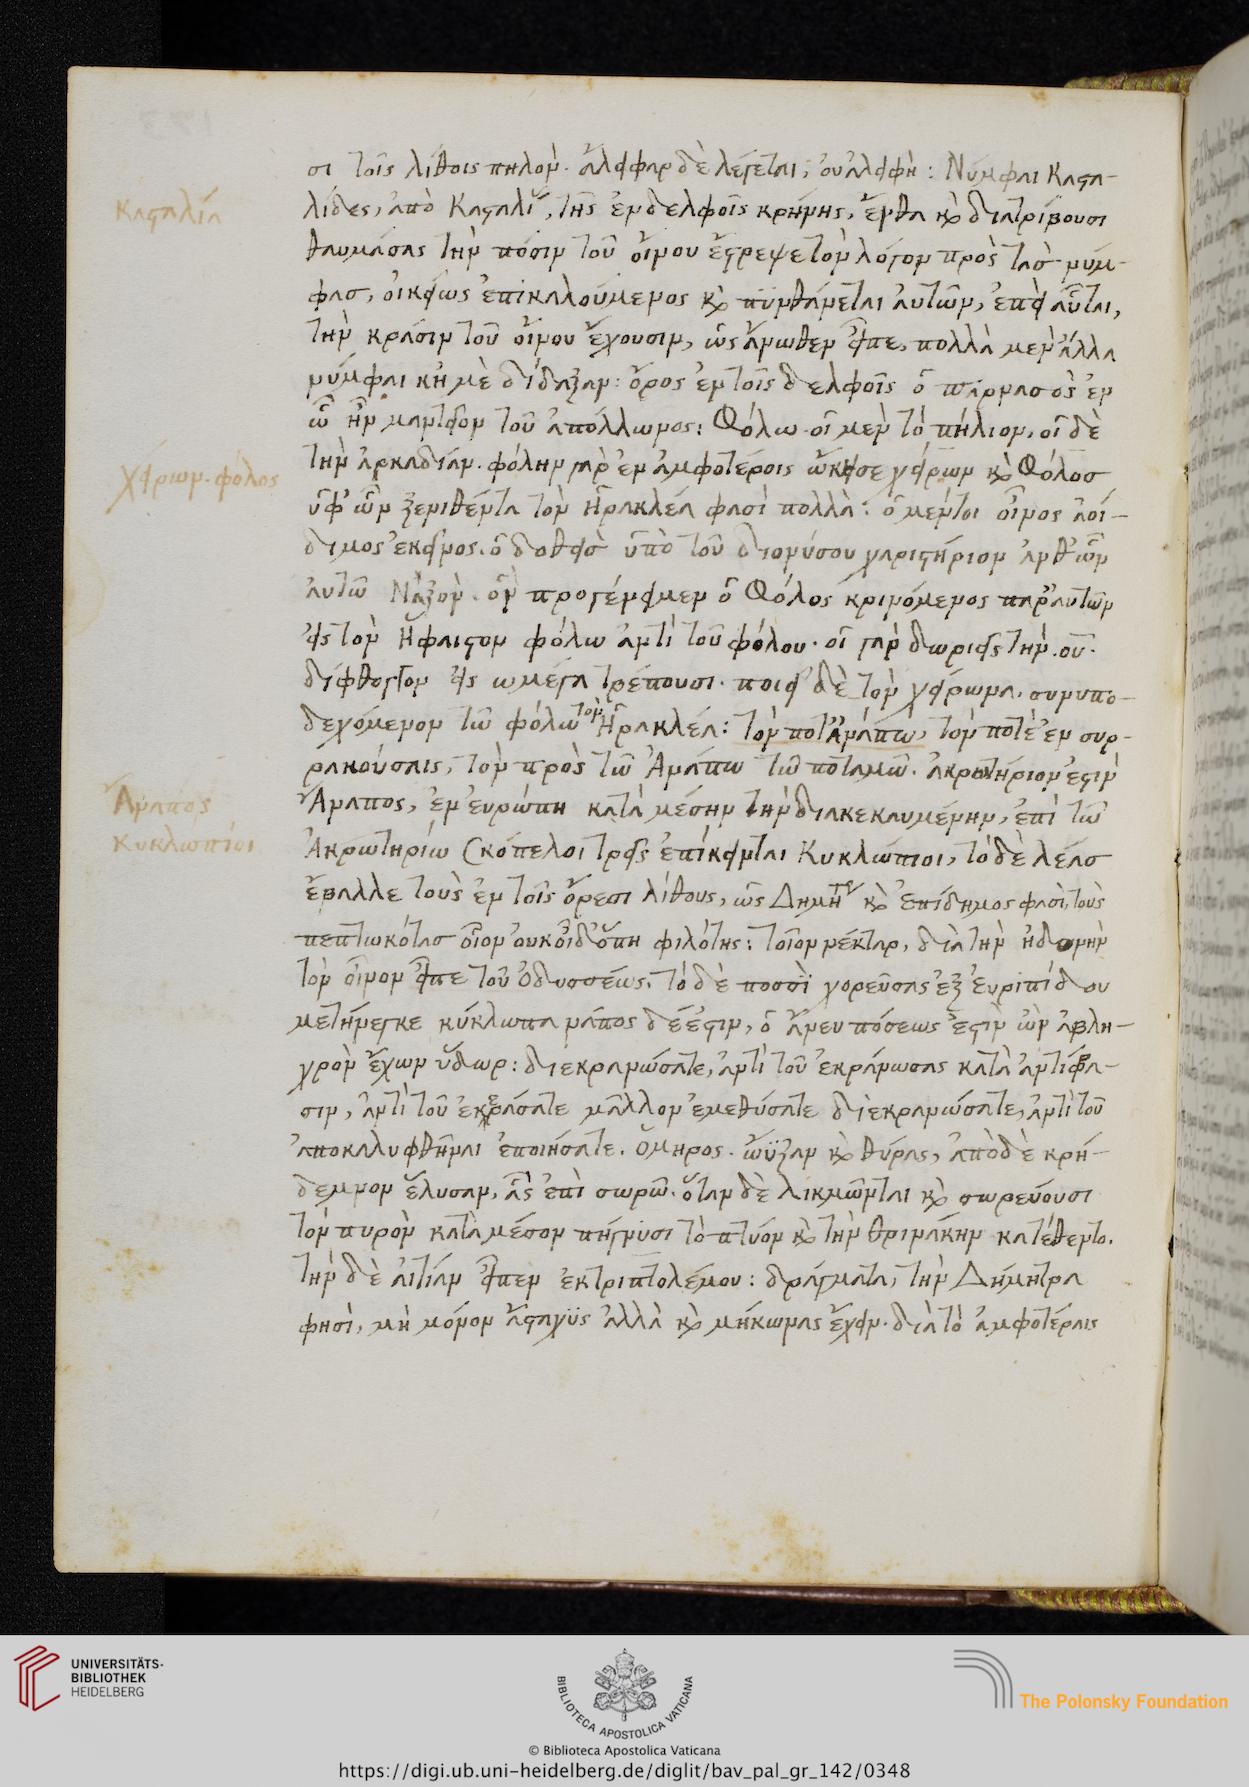 σι τοῖς λίθοις πηλὸν. ἄλειφαρ δὲ λέγεται, οὐ ἀλειφὴ: Νύμφαι Καστα-
Κασταλία
λίδες, ἀπὸ Κασταλί, τῆς ἐν δελφοῖς κρήνης, ἔνθα καὶ διατρίβουσι
θαυμάσας τὴν πόσιν τοῦ οἴνου ἔστρεψε τὸν λόγον πρὸς τὰσ νύμ-
φασ, οἰκείως ἐπικαλούμενος καὶ πϋνθάνεται αὐτῶν, ἐπεὶ αὗται,
τὴν κράσιν τοῦ οἴνου ἔχουσιν, ὡς ἄνωθεν εἶπε, πολλὰ μὲν ἄλλα
νύμφαι κἠμὲ δίδαξαν: ὄρος ἐν τοῖς δελφοῖς ὁ παρνασὸς ἐν
ὧ ἦν μαντεῖον τοῦ ἀπόλλωνος: Φόλω. οἱ μὲν τὸ πήλιον, οἱ δὲ
Χείρων. φόλος
τὴν ἀρκαδίαν. φόλην γὰρ ἐν ἀμφοτέροις ὤκησε χείρων καὶ Φόλοσ
ὑφ' ὧν ξενιθέντα τὸν Ἡρακλέα φασὶ πολλὰ: ὁ μέντοι οἶνος ἀοί-
διμος ἐκεῖνος. ὁ δοθεὶσ ὑπὸ τοῦ διονύσου χαριστήριον ἀνθ' ὧν
αὐτῶ Νάξον. ὃν προγέμειμεν ὁ Φόλος κρινόμενος παρ' αὐτῶν
εἰς τὸν Ἥφαιστον φόλω ἀντὶ τοῦ φόλου. οἱ γὰρ δωριεῖς τὴν. ου.
δίφθογγον εἰς ω μέγα τρέπουσι. ποιεῖ δὲ τὸν χείρωνα. συνυπο-
δεχόμενον τῶ φόλω τὸν Ἡρακλέα: τὸν ποτ' ἀνάπω, τὸν ποτὲ ἐν συρ-
ρακούσαις, τὸν πρὸς τῶ Ἀνάπω τῶ ποταμῶ. ἀκρωτήριον ἐστὶν
Ἄναπος
Ἄναπος, ἐν εὐρώπη κατὰ μέσην τὴν διακεκαυμένην, ἐπὶ τῶ
Κυκλώπιοι
Ἀκρωτηρίω Σκόπελοι τρεῖς ἐπίκεινται Κυκλώπιοι, τὸ δὲ λέασ
ἔβαλλε τοὺς ἐν τοῖς ὄρεσι λίθους, ὡς Δημήτ καὶ Ἐπίδημος φασὶ, τοὺς
πεπτωκότασ οἷον οὐκ οἶδ' ὅπη φιλότης: τοῖον νέκταρ, διὰ τὴν ἡδονὴν
τὸν οἶνον εἶπε τοῦ Ὀδυσσέως. τὸ δὲ ποσσὶ χορεῦσας ἐξ Εὐριπίδου
μετήνεγκε κύκλωπα νάπος δέ ἐστιν, ὁ ἄνευ πόσεως ἐστὶν ὢν ἀβλη-
χρὸν ἔχων ὕδωρ: διεκρανώσατε, ἀντὶ τοῦ ἐκράνωσας κατὰ ἀντίφρα-
σιν, ἀντὶ τοῦ ἐκεράσατε μᾶλλον ἐμεθύσατε διεκρανώσατε, ἀντὶ τοῦ
ἀποκαλυφθῆναι ἐποιήσατε. Ὅμηρος. ὤϋξαν καὶ θύρας, ἀπὸ δὲ κρή-
δεμνον ἔλυσαν, ἇς ἐπὶ σωρῶ. ὅταν δὲ λικμῶνται καὶ σωρεύουσι
τὸν πυρὸν κατὰ μέσον πήγνυσι τὸ πτύον καὶ τὴν θρινάκην κατέθεντο.
τὴν δὲ αἰτίαν εἶπεν ἐκ τριπτολέμου: δράγματα, τὴν Δήμητρα
φησὶ, μὴ μόνον ἄσταχϋς ἀλλὰ καὶ μήκωνας ἔχειν. διὰ τὸ ἀμφοτέραις
UNIVERSITÄTS-
BIBLIOTHEK
HEIDELBERG
BIBLIOTECA APOSTOLICA VATICANA
The Polonsky Foundation
© Biblioteca Apostolica Vaticana
https://digi.ub.uni-heidelberg.de/diglit/bav_pal_gr_142/0348